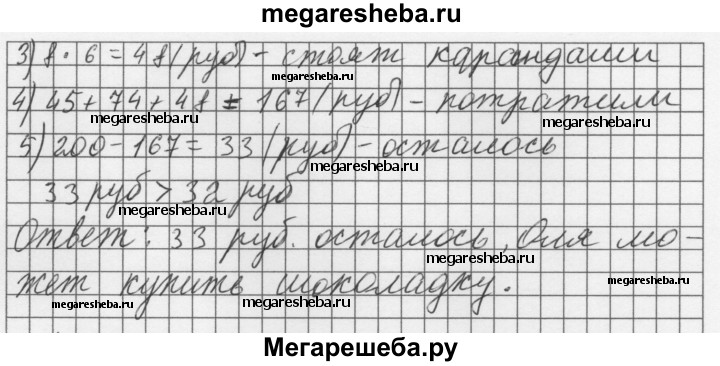 megaresheba.ru
3) 8 · 6 = 48 (руб) - стоят карандаши
megaresheba.ru
4) 45 + 74 + 48 = 167 (руб) - потратили
megaresheba.ru megaresheba.ru
5) 200 - 167 = 33 (руб) - осталось
megaresheba.ru
33 руб > 32 руб
megaresheba.ru
Ответ: 33 руб. осталось, Оля мо-
megaresheba.ru
жет купить шоколадку.
megaresheba.ru megaresheba.ru megaresheba.ru
Мегарешеба.ру